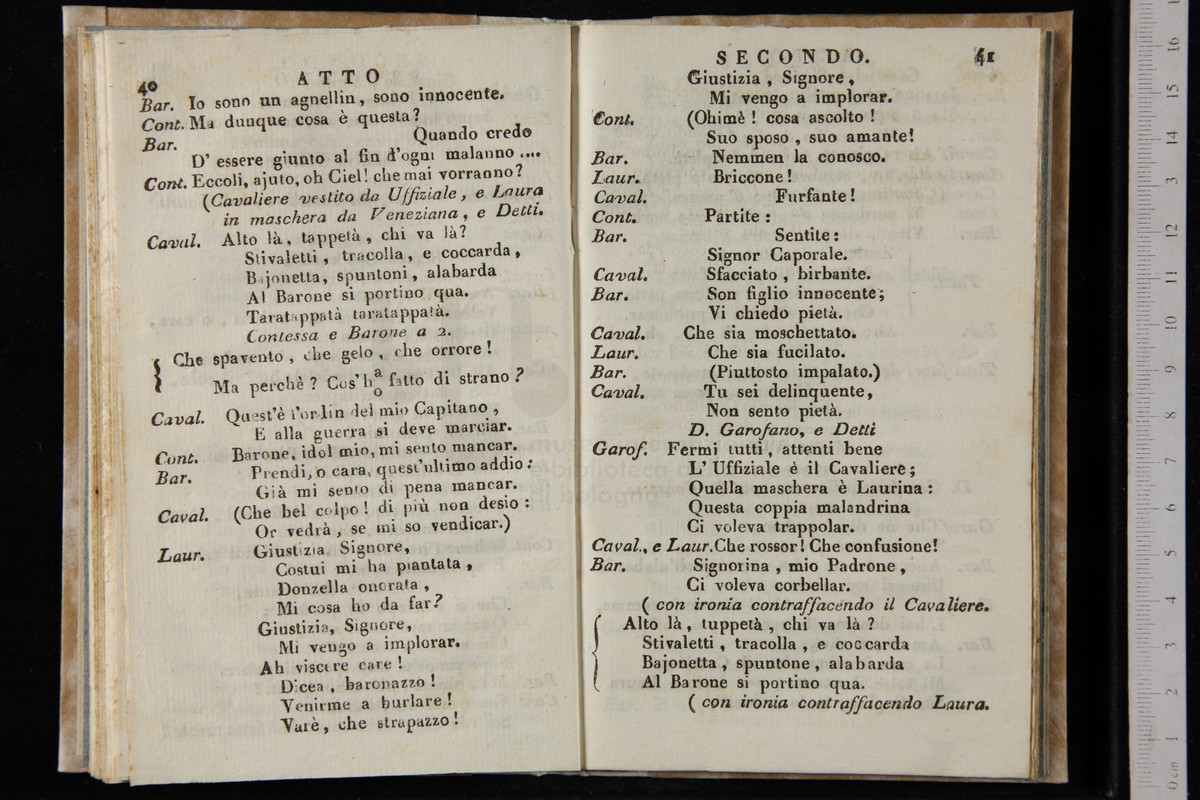 40
ATTO
Bar. Io sono un agnellin, sono innocente.
Cont. Ma dunque cosa è questa?
Bar. Quando credo
D' essere giunto al fin d'ogni malanno ....
Cont. Eccoli, ajuto, oh Ciel! che mai vorranno?
(Cavaliere vestito da Uffiziale, e Laura
in maschera da Veneziana, e Detti.
Caval. Alto là, tappetà, chi va là?
Stivaletti, tracolla, e coccarda,
Bajonetta, spuntoni, alabarda
Al Barone si portino qua.
Taratappatà taratappatà.
Contessa e Barone a 2.
{ Che spavento, che gelo, che orrore!
Ma perchè? Cos'h a/o fatto di strano?
Caval. Quest'è l'ordin del mio Capitano,
E alla guerra si deve marciar.
Cont. Barone, idol mio, mi sento mancar.
Bar. Prendi, o cara, quest'ultimo addio:
Già mi sento di pena mancar.
Caval. (Che bel colpo! di più non desio:
Or vedrà, se mi so vendicar.)
Laur. Giustizia, Signore,
Costui mi ha piantata,
Donzella onorata,
Mi cosa ho da far?
Giustizia, Signore,
Mi vengo a implorar.
Ah viscere care!
Dicea, baronazzo!
Venirme a burlare!
Varè, che strapazzo!
SECONDO.
41
Giustizia, Signore,
Mi vengo a implorar.
Cont. (Ohimè! cosa ascolto!
Suo sposo, suo amante!
Bar. Nemmen la conosco.
Laur. Briccone!
Caval. Furfante!
Cont. Partite:
Bar. Sentite:
Signor Caporale.
Caval. Sfacciato, birbante.
Bar. Son figlio innocente;
Vi chiedo pietà.
Caval. Che sia moschettato.
Laur. Che sia fucilato.
Bar. (Piuttosto impalato.)
Caval. Tu sei delinquente,
Non sento pietà.
D. Garofano, e Detti
Garof. Fermi tutti, attenti bene
L' Uffiziale è il Cavaliere;
Quella maschera è Laurina:
Questa coppia malandrina
Ci voleva trappolar.
Caval., e Laur. Che rossor! Che confusione!
Bar. Signorina, mio Padrone,
Ci voleva corbellar.
( con ironia contraffacendo il Cavaliere.
{ Alto là, tuppetà, chi va là?
Stivaletti, tracolla, e coccarda
Bajonetta, spuntone, alabarda
Al Barone si portino qua.
( con ironia contraffacendo Laura.